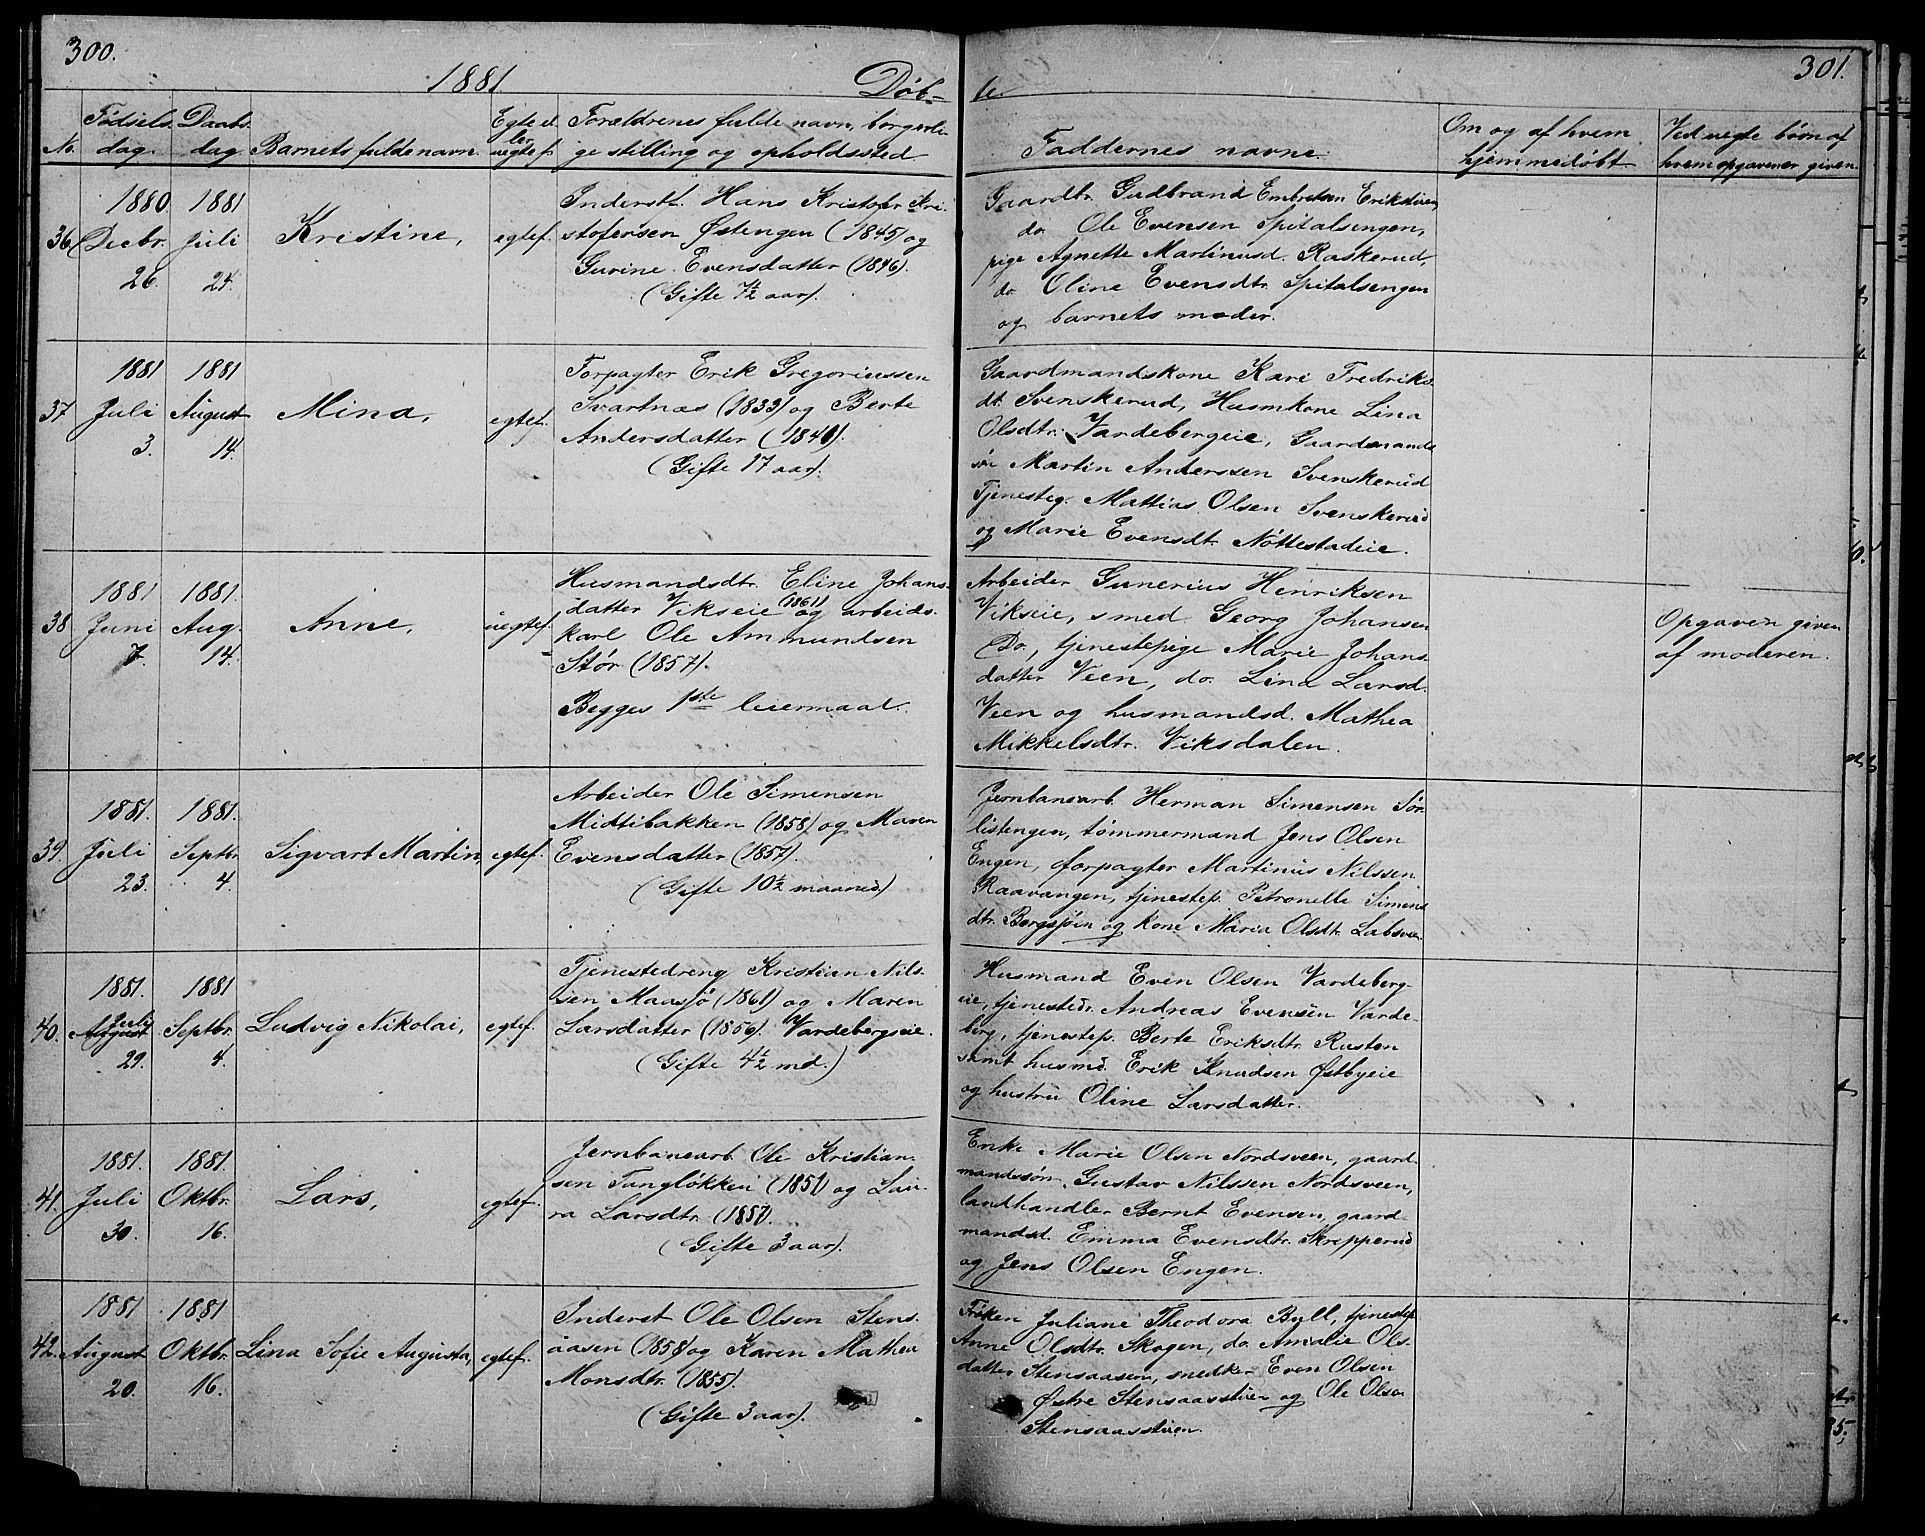 300.
1881
Døb-
No.
Fødsels
dag.
Daabs
dag
Barnets fulde navn.
Egte el
uegtef.
Forældrenes fulde navn, borgerli-
ge stilling og opholdssted
36
1880.
Decbr.
26.
1881
Juli
24.
Kristine,
egtef.
Inderst. Hans Kristofer Kri-
stofersen Østengen (1845) og
Gurine Evensdatter (1846).
(Gifte 7½ aar).
37
1881
Juli
3.
1881
August
14.
Mina,
egtef.
Forpagter Erik Gregoriussen
Svartnæs (1833) og Berte
Andersdatter (1840).
(Gifte 17 aar).
38
1881
Juni
7.
1881.
Aug.
14.
Anne,
uegtef.
Husmandsdtr. Eline Johans-
datter Vikseie (1861) og arbeids-
karl Ole Ammundsen
Stør (1857).
Begges 1ste leiermaal.
39.
1881.
Juli
23.
1881.
Septbr.
4.
Sigvart Martin,
egtef.
Arbeider Ole Simensen
Midtibakken (1858) og Maren
Evensdatter (1857).
(Gifte 10½ maaned)
40.
1881.
Juli
August
29.
1881
Septbr.
4.
Ludvig Nikolai,
egtef.
Tjenestedreng Kristian Nils-
sen Maasjø (1861) og Maren
Larsdatter (1856). Vardebergseie.
(Gifte 4½ md.)
41.
1881.
Juli
30.
1881.
Oktbr.
16.
Lars,
egtef.
Jernbanearb. Ole Kristian-
sen Tangløkken (1851) og Lau-
ra Larsdtr. (1857).
(Gifte 3 aar).
42.
1881
August
20.
1881
Oktbr.
16.
Lina Sofie Augusta,
egtef.
Inderst Ole Olsen Stens-
aasen (1858) og Karen Mathea
Monsdtr. (1855).
(Gifte 3 aar).
301.
te.
Faddernes navne.
Om og af hvem
hjemmedøbt
Ved uegte børn af
hvem opgaven er given.
Gaardbr. Gudbrand Embretsen Erikstuen,
do. Ole Evensen Spitalsengen,
pige Agnette Martinusd. Raskerud,
do. Oline Evensdtr. Spitalsengen
og barnets moder.
Gaardmandskone Kari Fredriks-
dt. Svenskerud, Husmkone Lina
Olsdtr. Vardebergeie, Gaardmands
søn Martin Anderssen Svenskerud
Tjenesteg. Mattias Olsen Svenskerud
og Marie Evensdt. Nøttestadeie.
Arbeider Gunerius Henriksen
Vikseie, smed Georg Johansen
Do., tjenestepige Marie Johans-
datter Veen, do. Lina Larsd.
Veen og husmandsd. Mathea
Mikkelsdtr. Viksdalen.
Opgaven given
af moderen.
Jernbanearb. Herman Simensen Sør-
listengen, tømmermand Jens Olsen
Engen, forpagter Martinus Nilssen
Raavangen, tjenestep. Petronelle Simens
dtr. Bergsjøen og kone Maria Olsdt. Labsveen.
Husmand Even Olsen Vardeberg-
eie, tjenestedr. Andreas Evensen Varde-
berg, tjenestep. Berte Eriksdtr. Rusten
samt husmd. Erik Knudsen Østbyeie
og hustru Oline Larsdatter.
Enke Marie Olsen Nordsveen, gaard
mandssøn Gustav Nilssen Nordsveen,
landhandler Bernt Evensen, gaard-
mandsd. Emma Evensdtr. Skrepperud
og Jens Olsen Engen.
Frøken Juliane Theodora Byll, tjenestep.
Anne Olsdtr. Skogen, do. Amalie Ols-
datter Stensaasen, snedker Even Olsen
Østre Stensaasstuen og Ole Olsen
Stensaasstuen.